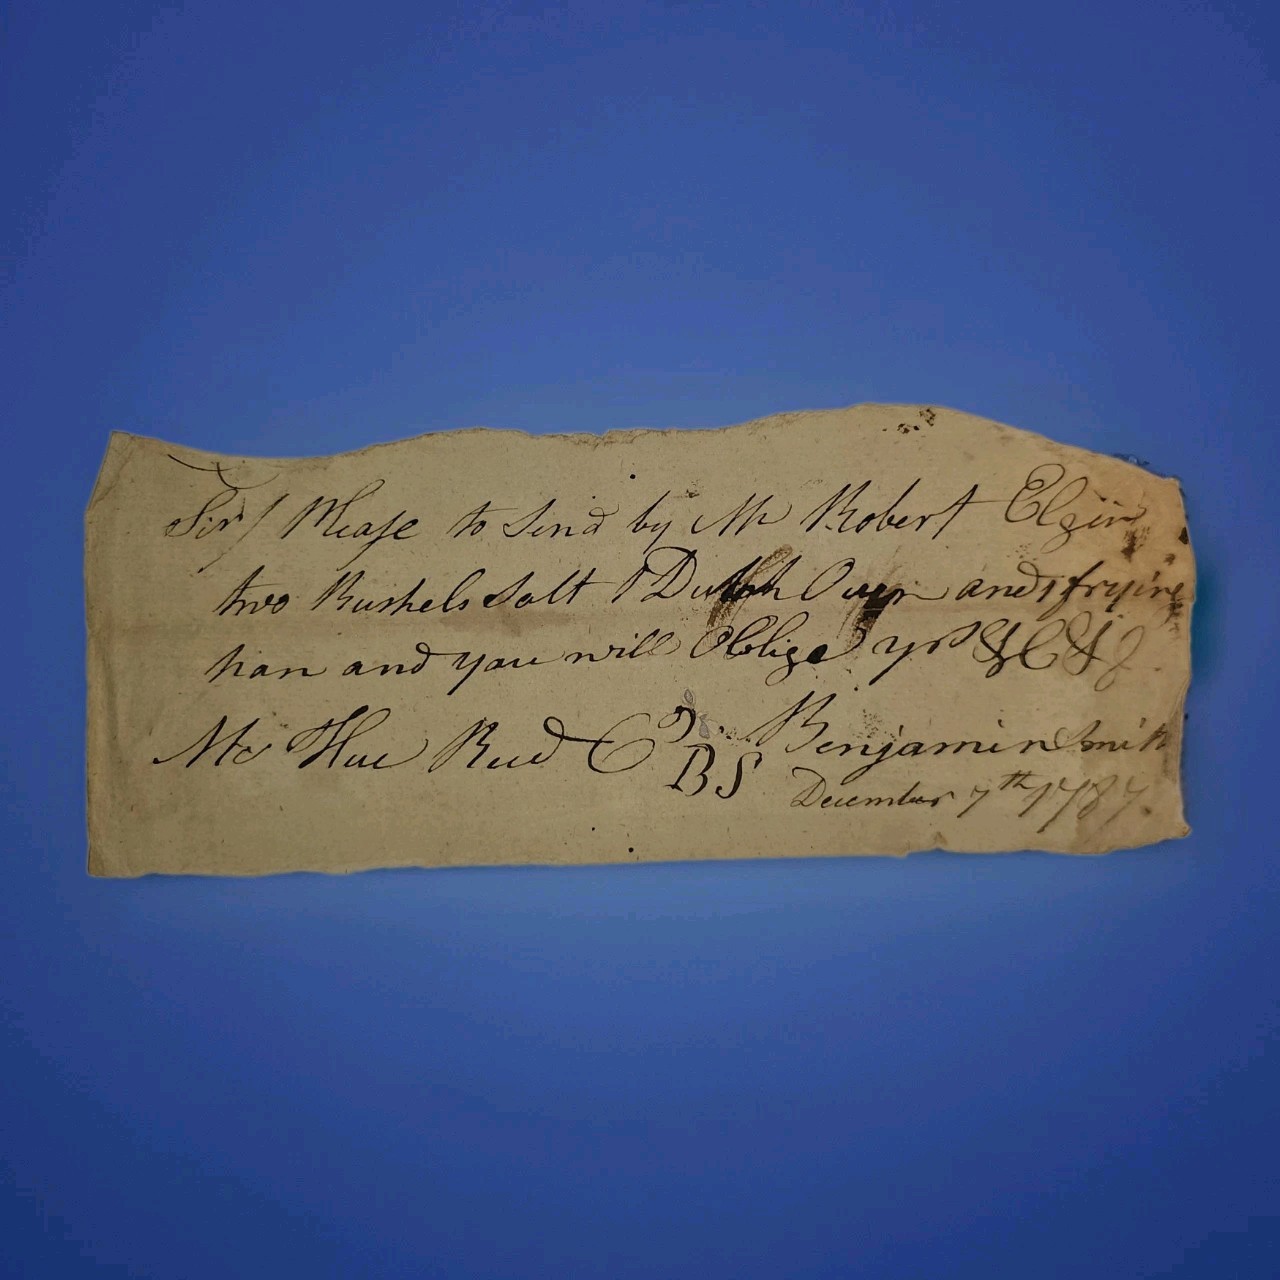 Sir/ Please to Send by Mr Robert Elgin
two Bushels Salt 1 Dutch Oven and 1 frying
Pan and you will Oblige yrs &C &C
Mr Hue Reed Co Benjamin Smith
BS December 7th 1787.